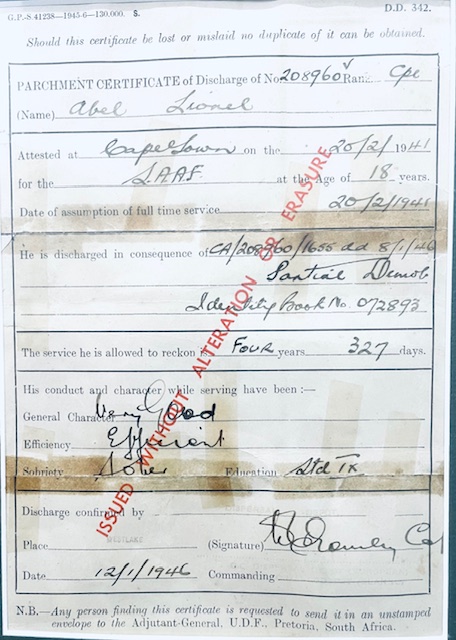 G.P.-S.41238—1945-6—130,000. S.
D.D. 342.
Should this certificate be lost or mislaid no duplicate of it can be obtained.
PARCHMENT CERTIFICATE of Discharge of No 208960 V Rank Cpl
(Name) Abel Lionel
Attested at Cape Town on the 20/2/1941
for the S.A.A.F. at the Age of 18 years.
Date of assumption of full time service 20/2/1941
He is discharged in consequence of CA/208960/1655 dd 8/1/46
Partial Demob
Identity Book No. 072893
The service he is allowed to reckon is FOUR years 327 days.
His conduct and character while serving have been :—
General Character Very Good
Efficiency Efficient
Sobriety Sober Education Std IX
Discharge confirmed by
Place WESTLAKE (Signature)
Date 12/1/1946 Commanding
N.B.—Any person finding this certificate is requested to send it in an unstamped
envelope to the Adjutant-General, U.D.F., Pretoria, South Africa.
ISSUED WITHOUT ALTERATION OR ERASURE